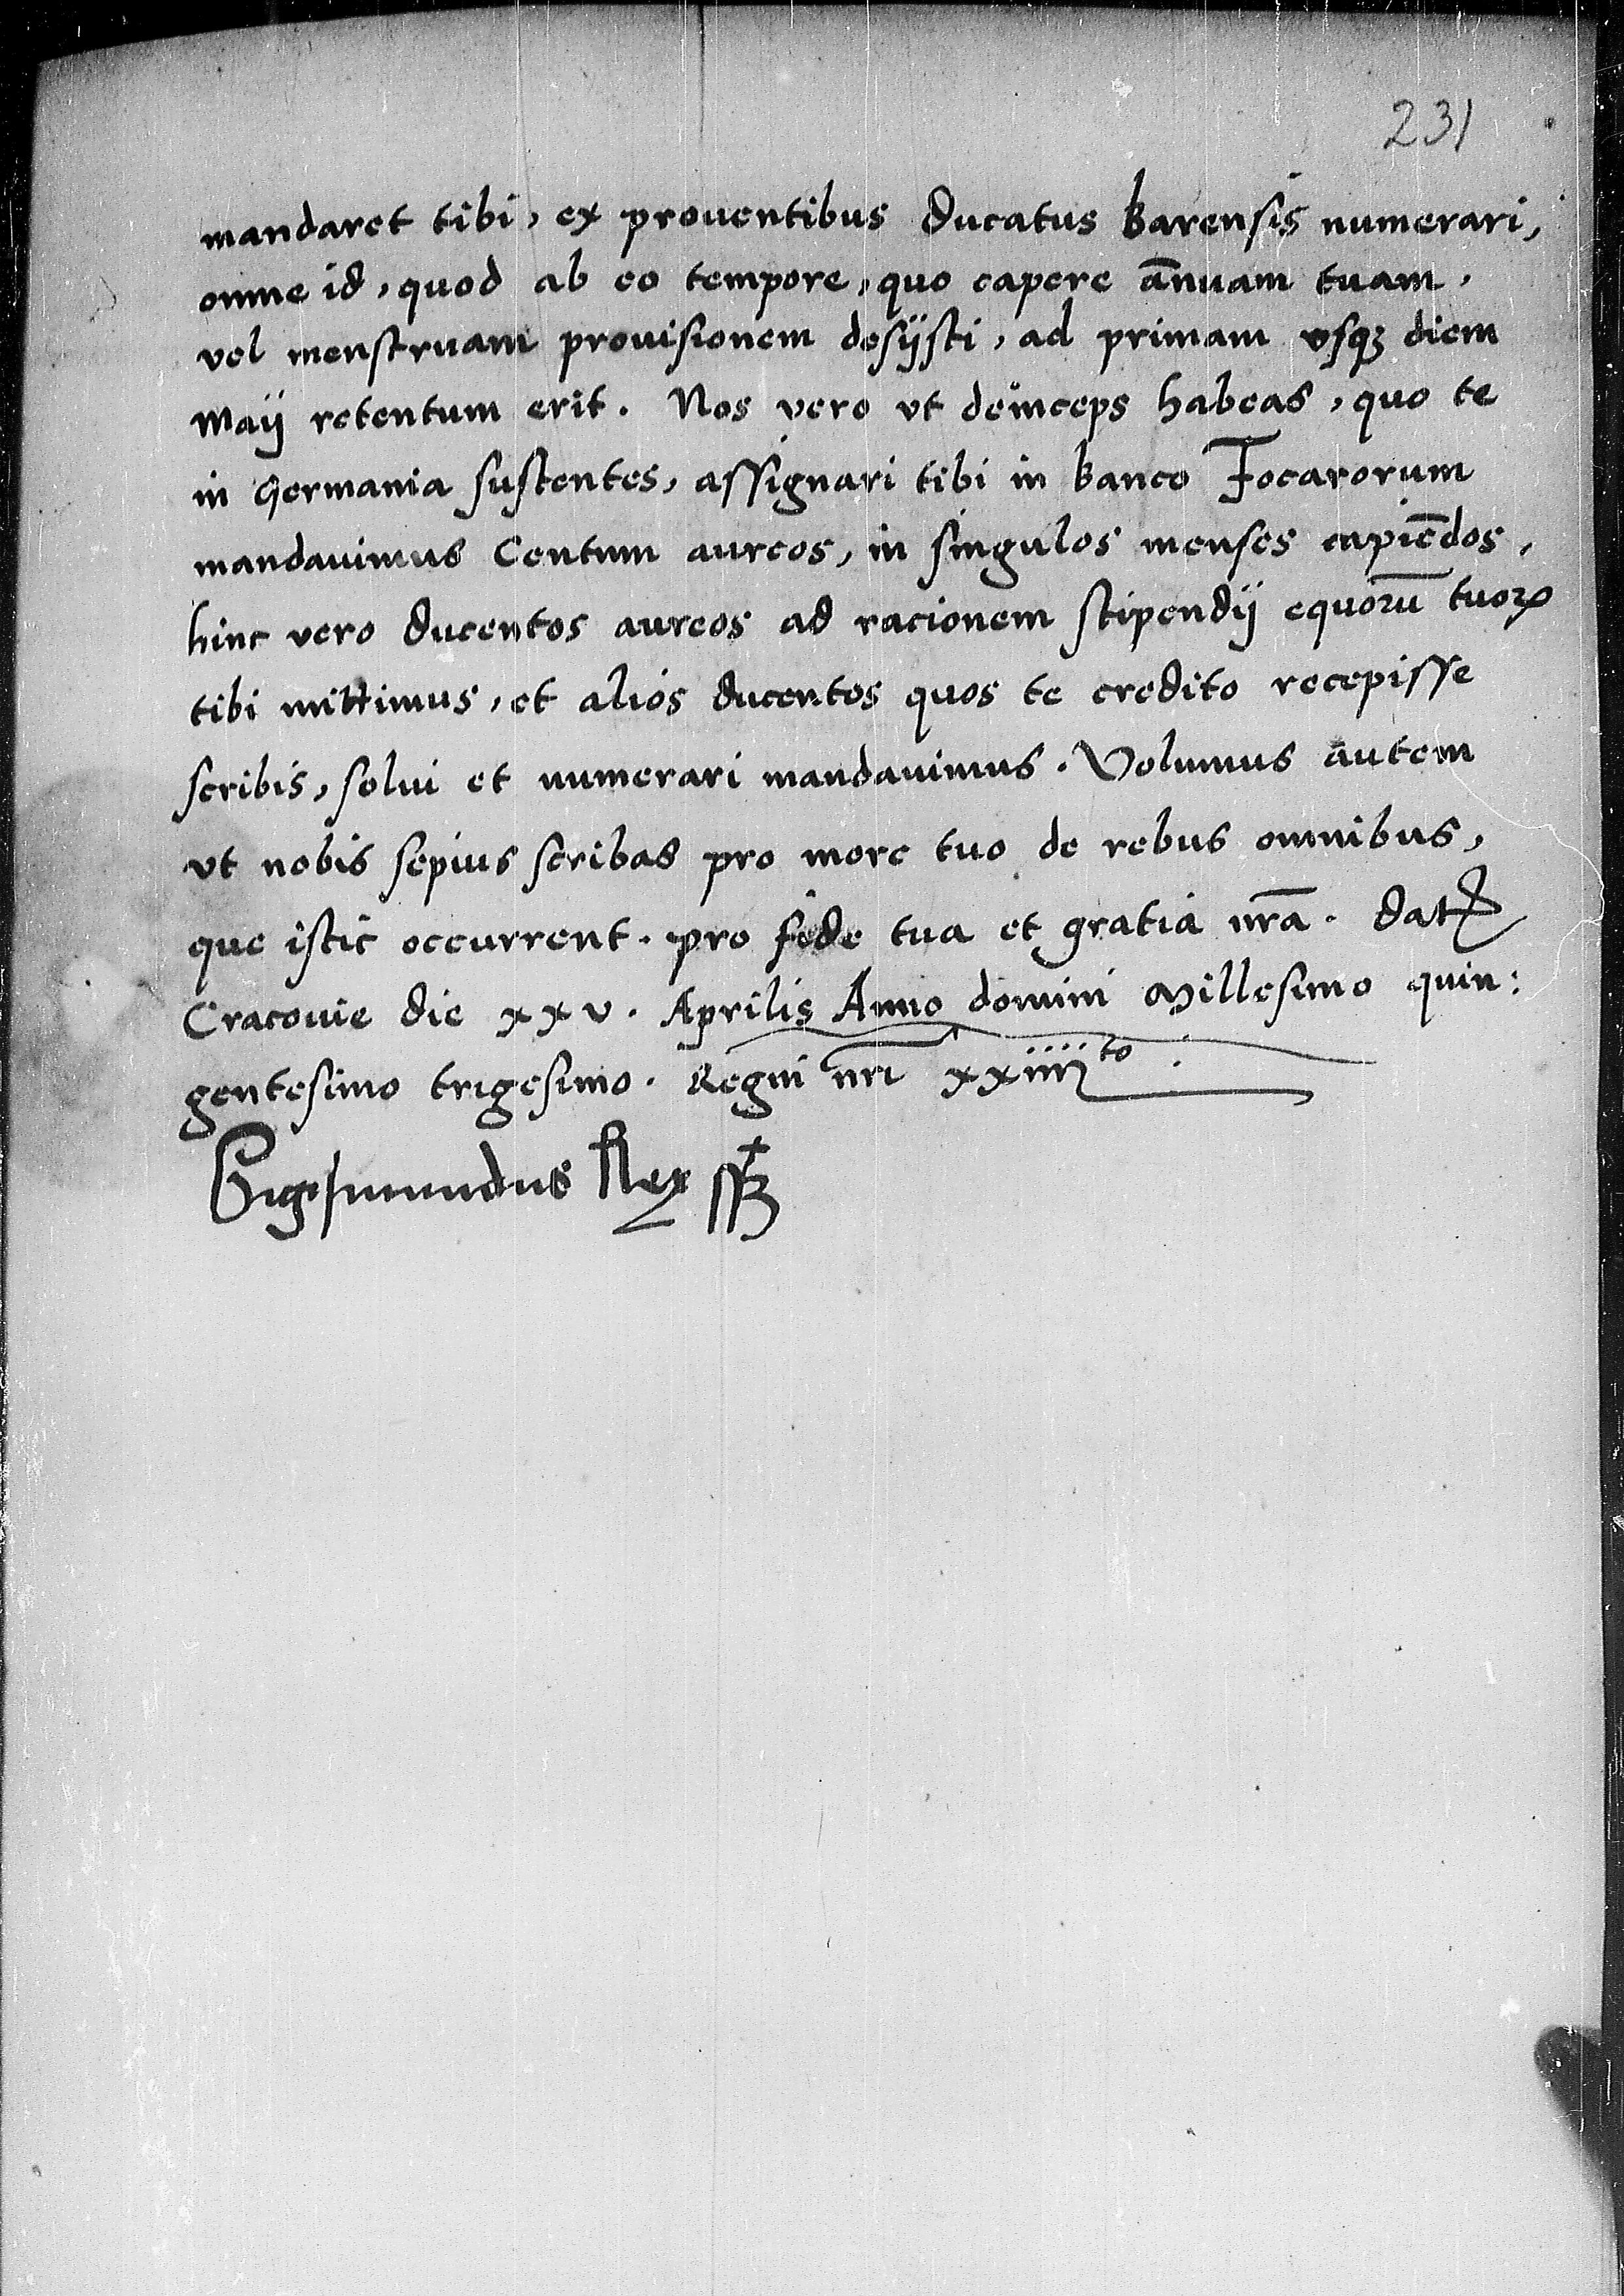 231
mandaret tibi, ex prouentibus Ducatus Barensis numerari,
omne id, quod ab eo tempore, quo capere ānnuam tuam,
vel menstruam prouisionem desijsti, ad primam vsqꝫ diem
Maij retentum erit. Nos vero vt deinceps habeas, quo te
in Germania sustentes, assignari tibi in banco Focarorum
mandauimus Centum aureos, in singulos menses capiēdos,
hinc vero ducentos aureos ad racionem stipendij equorū tuoꝝ
tibi mittimus, et alios ducentos quos te credito recepisse
scribis, solui et numerari mandauimus. Volumus autem
vt nobis sepius scribas pro more tuo de rebus omnibus,
que istic occurrent. pro fide tua et gratia nr̄a. Datꝭ
Cracouie die xxv. Aprilis Anno domini Millesimo quin:
gentesimo trigesimo. Regni nr̄i xxiiijto.
Sigismundus Rex sst